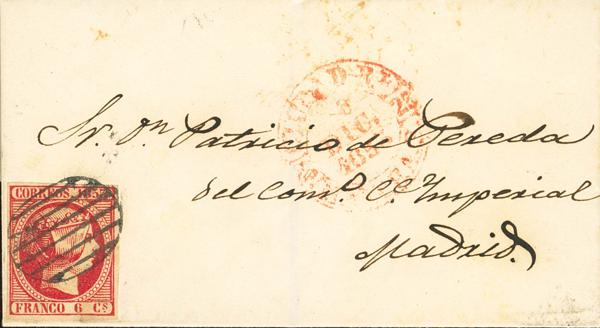 3
DIC.
Sr. Dn. Patricio de Pereda
del Com.o Cl. Imperial
Madrid.
CORREOS 185
FRANCO 6 Cs